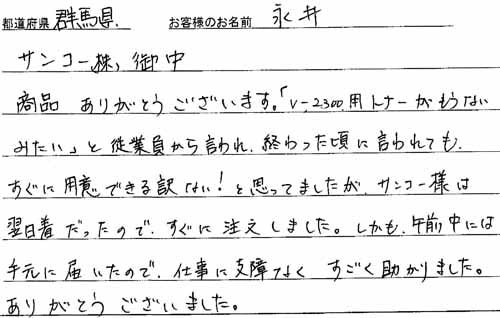 都道府県 群馬県 お客様のお名前 永井
サンコー株) 御中
商品 ありがとうございます。「V-2300用トナーがもうない
みたい」と従業員から言われ、終わった頃に言われても、
すぐに用意できる訳ない!と思ってましたが、サンコー様は
翌日着だったので、すぐに注文しました。しかも、午前中には
手元に届いたので、仕事に支障なく すごく助かりました。
ありがとうございました。